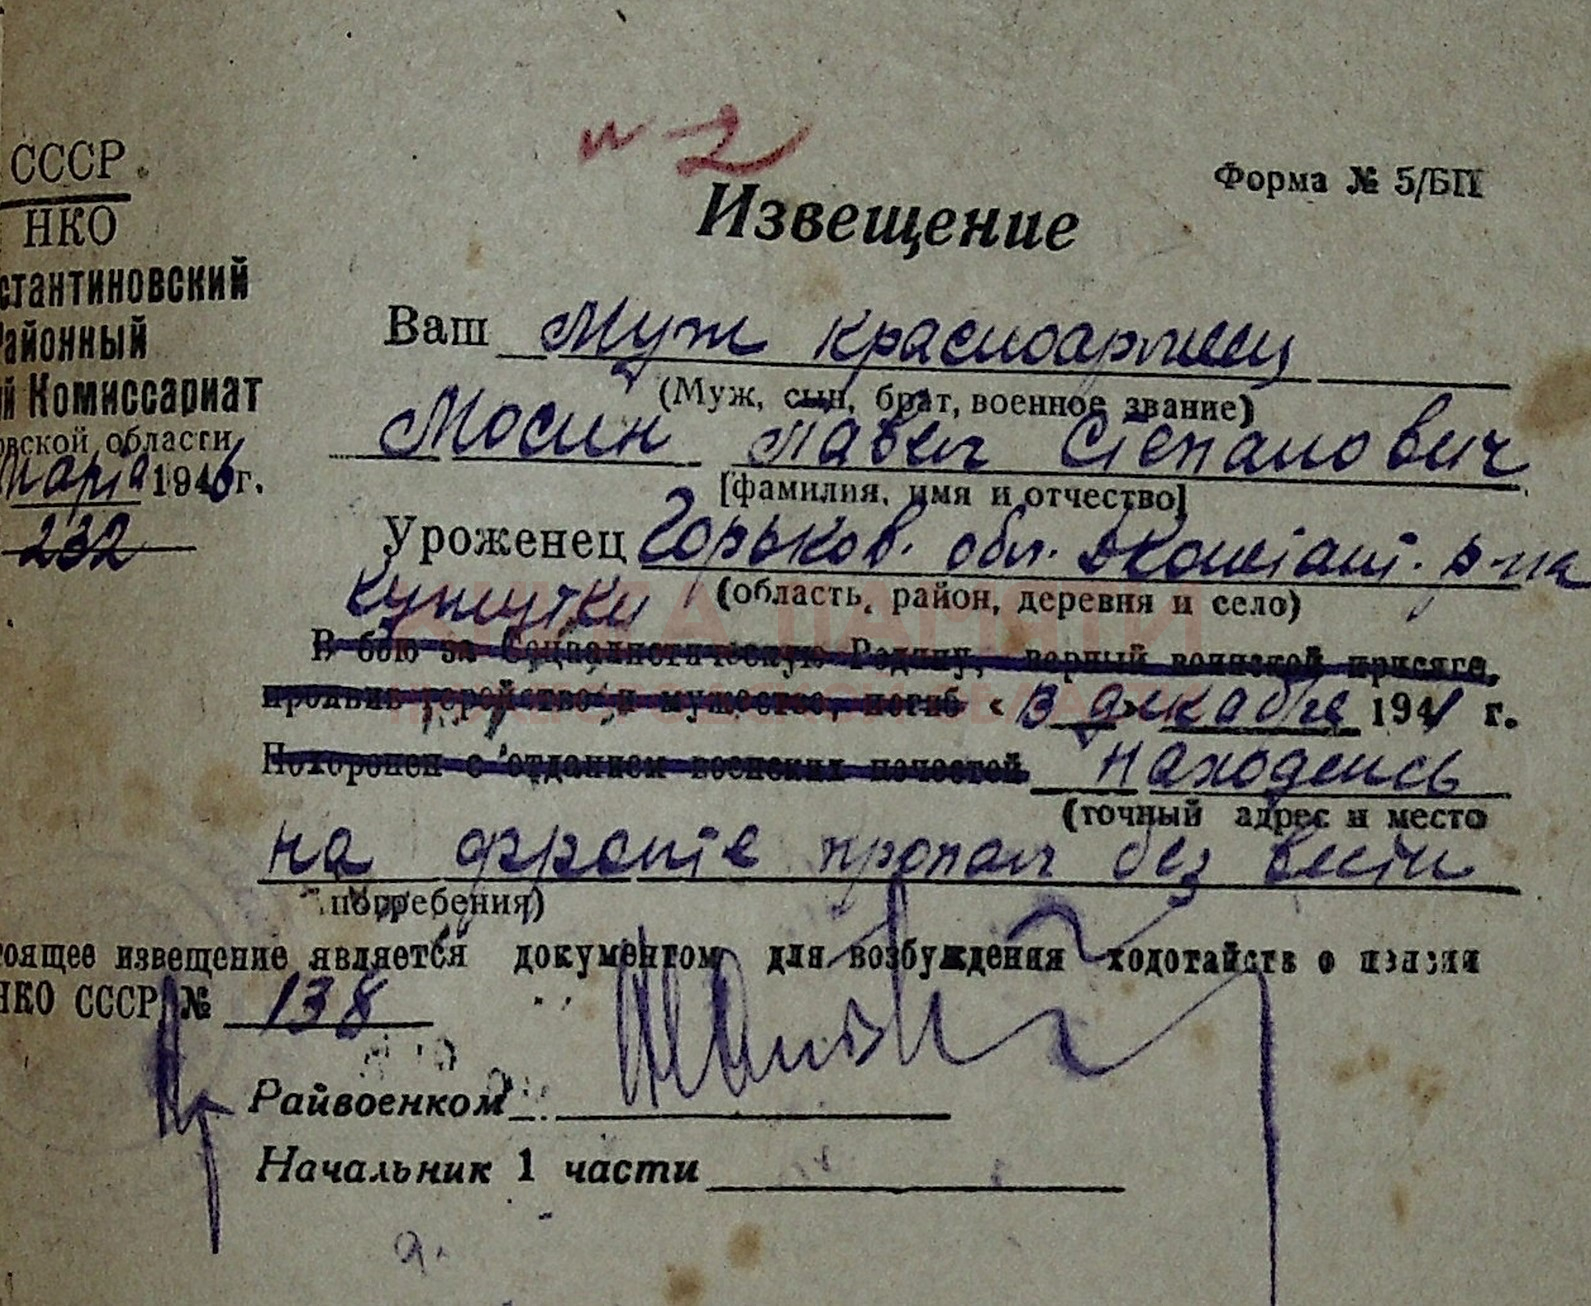 и 2
СССР
НКО
стантиновский
Районный
й Комиссариат
овской области
марта 1946 г.
232
Форма № 5/БП
Извещение
Ваш муж красноармеец
(Муж, сын, брат, военное звание)
Мосин Павел Степанович
[фамилия, имя и отчество]
Уроженец Горьков. обл. Дконстант. р-на
(область, район, деревня и село)
В бою за Социалистическую Родину, верный воинской присяге,
проявив геройство и мужество, погиб «В декабре 1941 г.
Похоронен с отданием воинских почестей Находясь
(точный адрес и место
на фронте пропал без вести
погребения)
тоящее извещение является документом для возбуждения ходотайств о пенсии
НКО СССР № 138
Райвоенком
Начальник 1 части